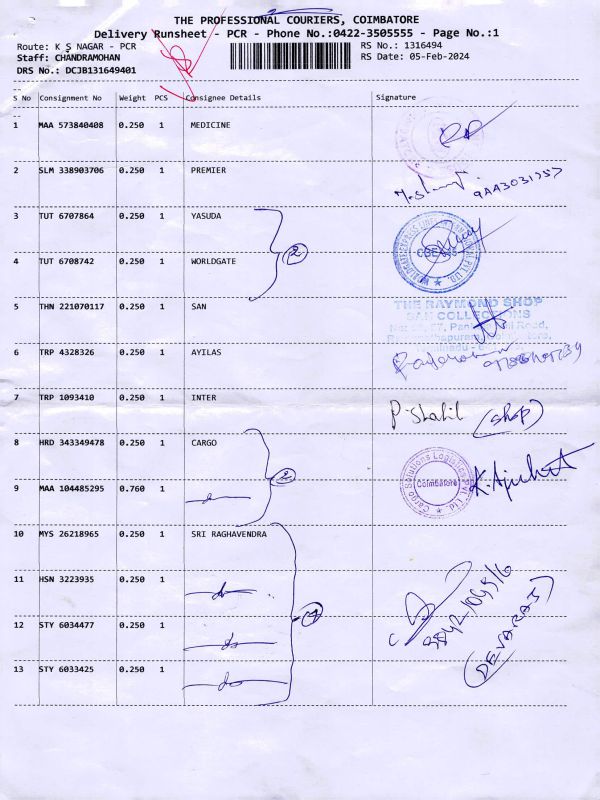 THE PROFESSIONAL COURIERS, COIMBATORE
Delivery Runsheet - PCR - Phone No.:0422-3505555 - Page No.:1
Route: K S NAGAR - PCR
RS No.: 1316494
Staff: CHANDRAMOHAN
RS Date: 05-Feb-2024
DRS No.: DCJB131649401
S No Consignment No Weight PCS Consignee Details Signature
1 MAA 573840408 0.250 1 MEDICINE
2 SLM 338903706 0.250 1 PREMIER
3 TUT 6707864 0.250 1 YASUDA
2
4 TUT 6708742 0.250 1 WORLDGATE
5 THN 221070117 0.250 1 SAN
THE RAYMOND SHOP
SAN COLLECTIONS
6 TRP 4328326 0.250 1 AYILAS
7 TRP 1093410 0.250 1 INTER
P. Shahil (shop)
8 HRD 343349478 0.250 1 CARGO
2
Cargo Solutions Logistics Pvt. Ltd.
Coimbatore
9 MAA 104485295 0.760 1 do
10 MYS 26218965 0.250 1 SRI RAGHAVENDRA
11 HSN 3223935 0.250 1 do
4
12 STY 6034477 0.250 1 do
(DEVARAJ)
13 STY 6033425 0.250 1 do